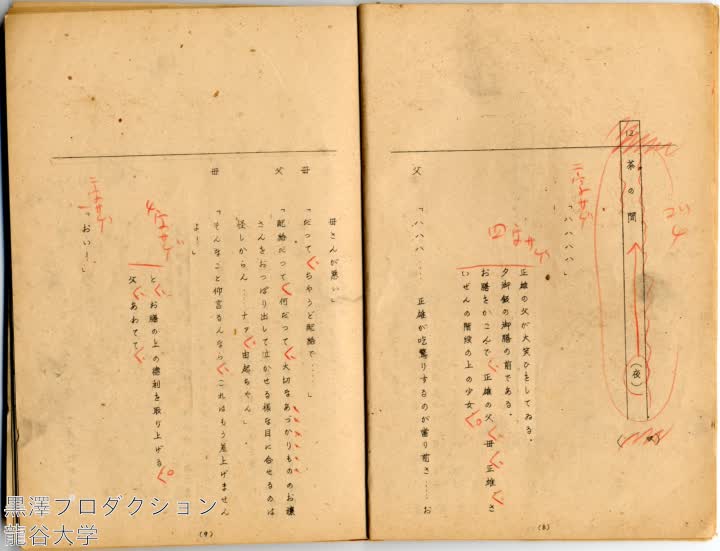 12 茶の間 (夜)
コイ
二字サゲ
「ハハハハ」
四字サゲ
正雄の父が大笑ひをしてゐる。
夕御飯の御膳の前である。
お膳をかこんで 正雄の父 母 正雄 さ
いぜんの階段の上の少女
父 「ハハハ……正雄が吃驚りするのが當り前さ……お
(8)
母さんが悪い」
母 「だって ちやうど配給で……」
父 「配給だって 何だって 大切なあづかりもののお嬢
さんをおっぽり出して泣かせる様な目に合せるのは
怪しからん……ナァ 由起ちゃん」
母 「そんなこと仰言るんなら これはもう差上げません
よー」
4字サゲ
と お膳の上の徳利を取り上げる
父 あわてて
二字サゲ
「おいー」
(9)
黒澤プロダクション
龍谷大学